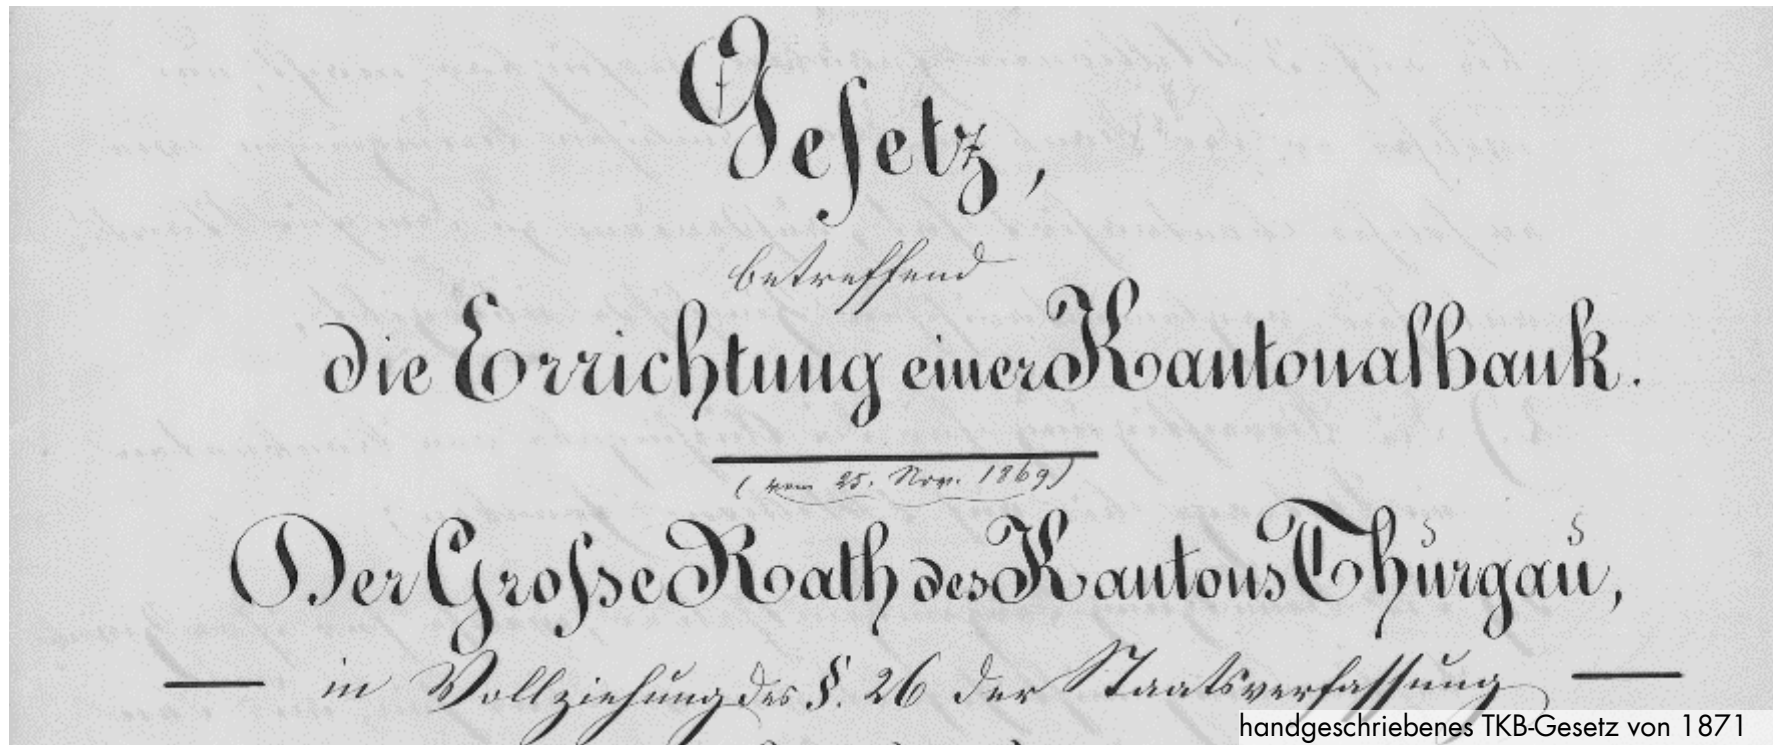 Gesetz,
betreffend
die Errichtung einer Kantonalbank.
(vom 25. Nov. 1869)
Der Grosse Rath des Kantons Thurgau,
— in Vollziehung des §. 26 der Staatsverfassung —
handgeschriebenes TKB-Gesetz von 1871